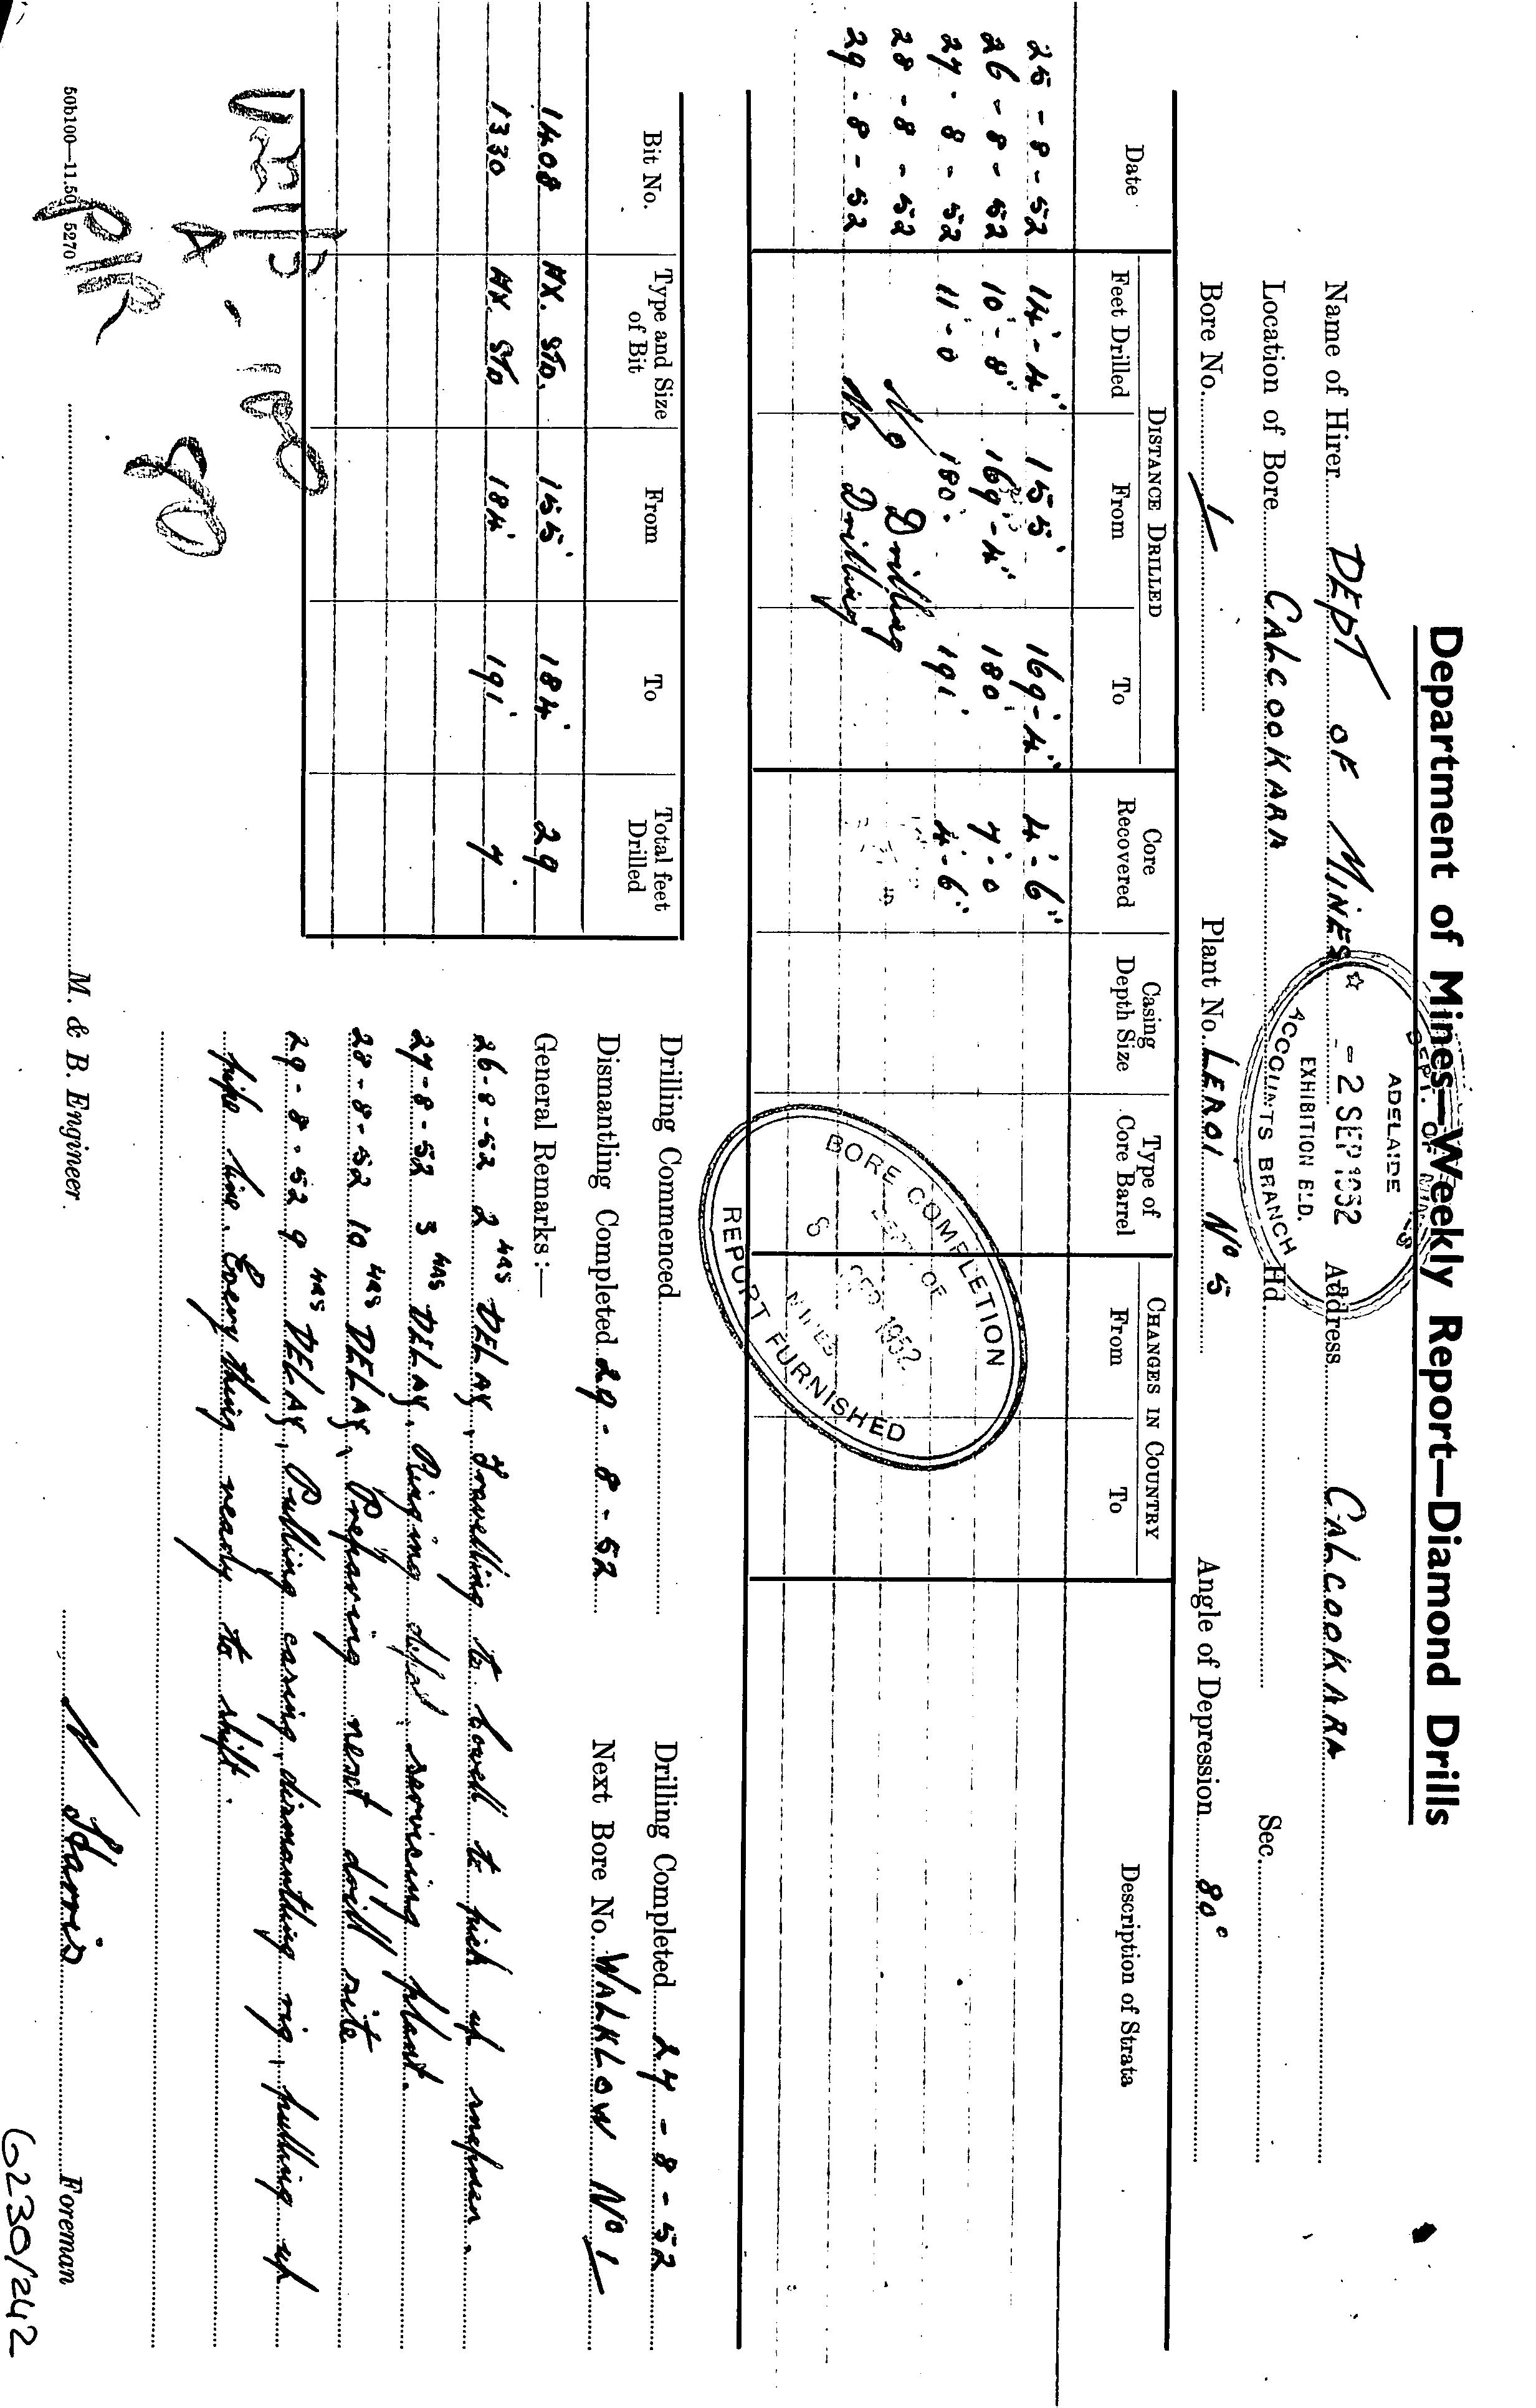 Department of Mines—Weekly Report—Diamond Drills
Name of Hirer DEPT OF MINES Address CALCOOKARA
Location of Bore CALCOOKARA Hd. Sec.
Bore No. 1 Plant No. LEROI No 5 Angle of Depression 80°
DEPT. OF MINES
ADELAIDE
- 2 SEP 1952
EXHIBITION B'LD.
ACCOUNTS BRANCH
Date DISTANCE DRILLED Core Recovered Casing Depth Size Type of Core Barrel CHANGES IN COUNTRY Description of Strata
Feet Drilled From To From To
25-8-52 14'-4" 155' 169'-4" 4'-6"
26-8-52 10'-8" 169'-4" 180' 7'-0
27-8-52 11'-0 180' 191' 4'-6"
28-8-52 No Drilling
29-8-52 No Drilling
BORE COMPLETION
DEPT. OF
1952
MINES
REPORT FURNISHED
Bit No. Type and Size of Bit From To Total feet Drilled
1408 NX. STD. 155' 184' 29
1330 NX STD 184' 191' 7'
Drilling Commenced Drilling Completed 27-8-52
Dismantling Completed 29-8-52 Next Bore No. WALKLOW No 1
General Remarks:—
26-8-52 2 HRS DELAY, Travelling to Cowell to pick up
27-8-52 3 HRS DELAY, Ringing servicing plant.
28-8-52 10 HRS DELAY, Preparing next drill site
29-8-52 9 HRS DELAY, Pulling casing, dismantling rig, pulling up
pipe line. Everything ready to shift.
M. & B. Engineer. Harris Foreman
50b100—11.50 5270
6230/242